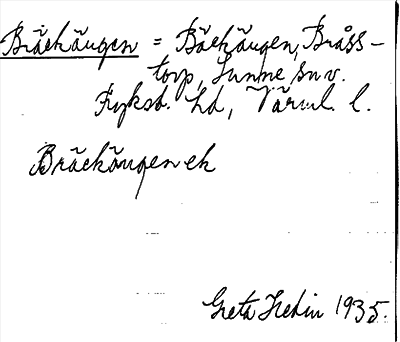 Bräckängen = Bäckängen, Bråss-
torp, Sunne sn v.
Fryksd. hd, Värml. l.
Bräckängen ek
Greta Hedin 1935.